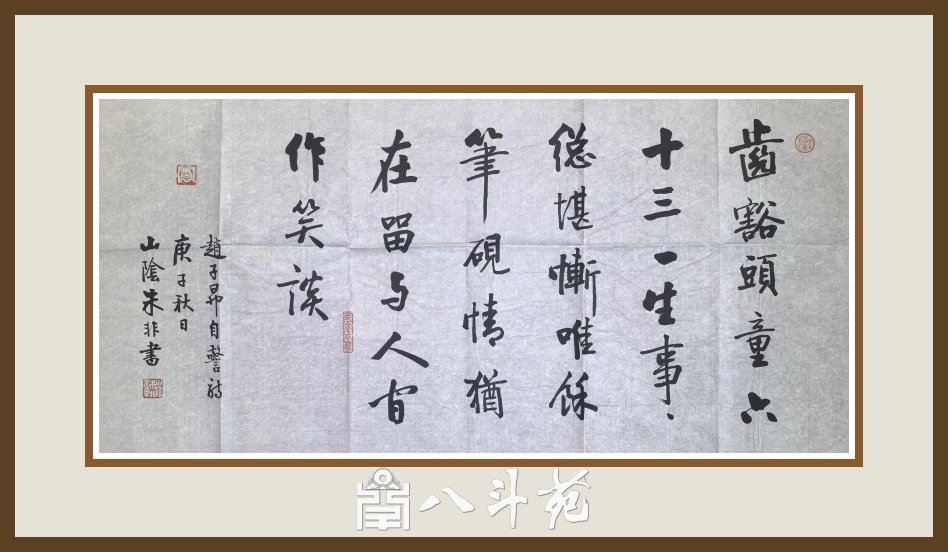 齒豁頭童六
十三一生事〻
總堪慚唯餘
筆硯情猶
在留与人間
作笑談
趙子昂自警詩
庚子秋日
山陰朱非書
八斗苑